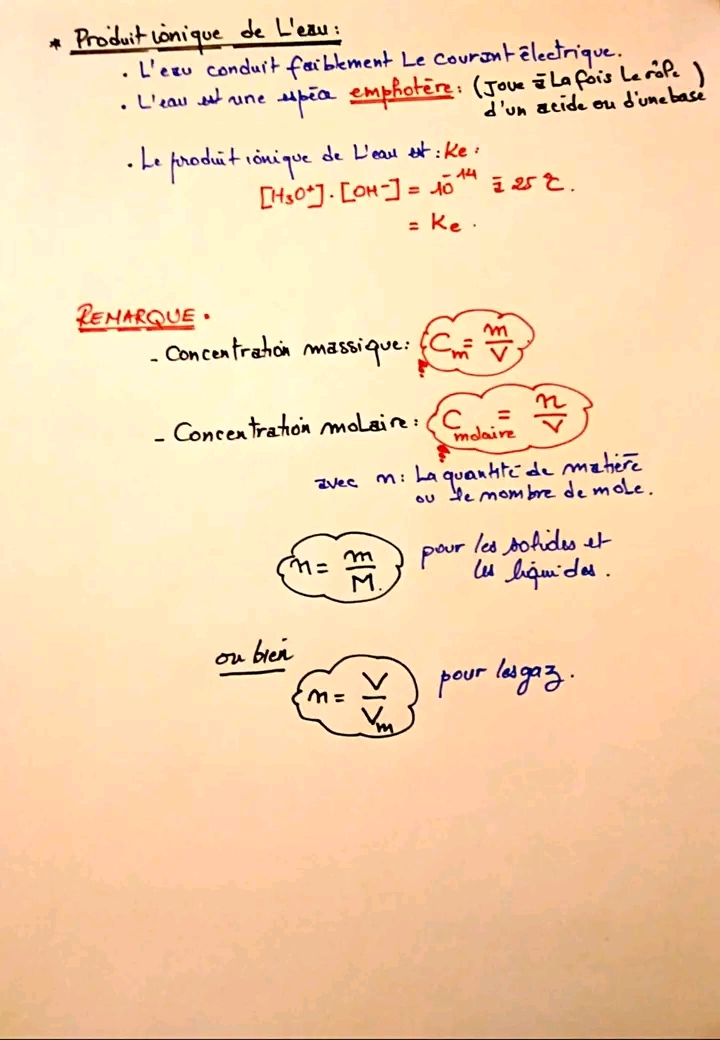 * Produit ionique de L'eau :
. L'eau conduit faiblement Le courant électrique.
. L'eau est une espèce emphotère : (Joue à La fois Le rôle
d'un acide ou d'une base)
. Le produit ionique de L'eau est : Ke :
[H₃O⁺] . [OH⁻] = 10⁻¹⁴ à 25 °C.
= Ke .
REMARQUE .
- Concentration massique : Cm = m/V
- Concentration molaire : C molaire = n/V
avec n : La quantité de matière
ou le nombre de mole.
n = m/M. pour les solides et
les liquides.
ou bien
n = V/Vm pour les gaz.